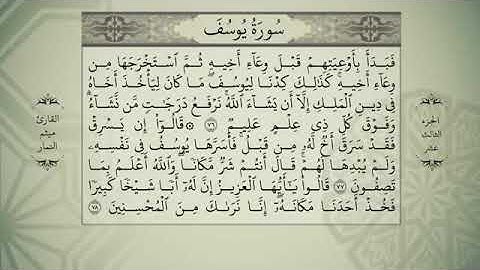 سُورَةُ يُوسُفَ
فَبَدَأَ بِأَوْعِيَتِهِمْ قَبْلَ وِعَآءِ أَخِيهِ ثُمَّ ٱسْتَخْرَجَهَا مِن
وِعَآءِ أَخِيهِ ۚ كَذَٰلِكَ كِدْنَا لِيُوسُفَ ۖ مَا كَانَ لِيَأْخُذَ أَخَاهُ
فِى دِينِ ٱلْمَلِكِ إِلَّآ أَن يَشَآءَ ٱللَّهُ ۚ نَرْفَعُ دَرَجَـٰتٍ مَّن نَّشَآءُ ۗ
وَفَوْقَ كُلِّ ذِى عِلْمٍ عَلِيمٌ ٧٦ ۞ قَالُوٓا۟ إِن يَسْرِقْ
فَقَدْ سَرَقَ أَخٌ لَّهُۥ مِن قَبْلُ ۚ فَأَسَرَّهَا يُوسُفُ فِى نَفْسِهِۦ
وَلَمْ يُبْدِهَا لَهُمْ ۚ قَالَ أَنتُمْ شَرٌّ مَّكَانًا ۖ وَٱللَّهُ أَعْلَمُ بِمَا
تَصِفُونَ ٧٧ قَالُوا۟ يَـٰٓأَيُّهَا ٱلْعَزِيزُ إِنَّ لَهُۥٓ أَبًا شَيْخًا كَبِيرًا
فَخُذْ أَحَدَنَا مَكَانَهُۥٓ ۖ إِنَّا نَرَىٰكَ مِنَ ٱلْمُحْسِنِينَ ٧٨
الجزء
الثالث
عشر
القارئ
ميثم
التمار